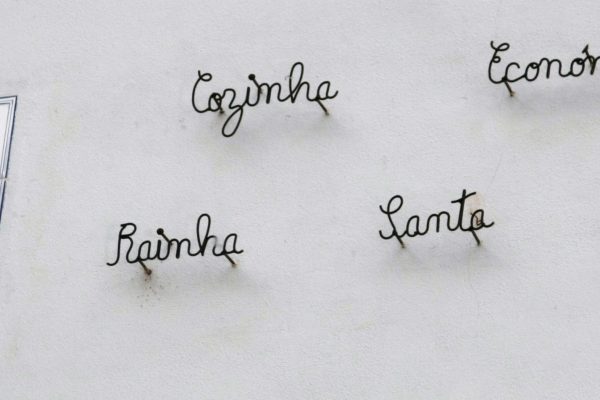 Cozinha Econó
Rainha Santa